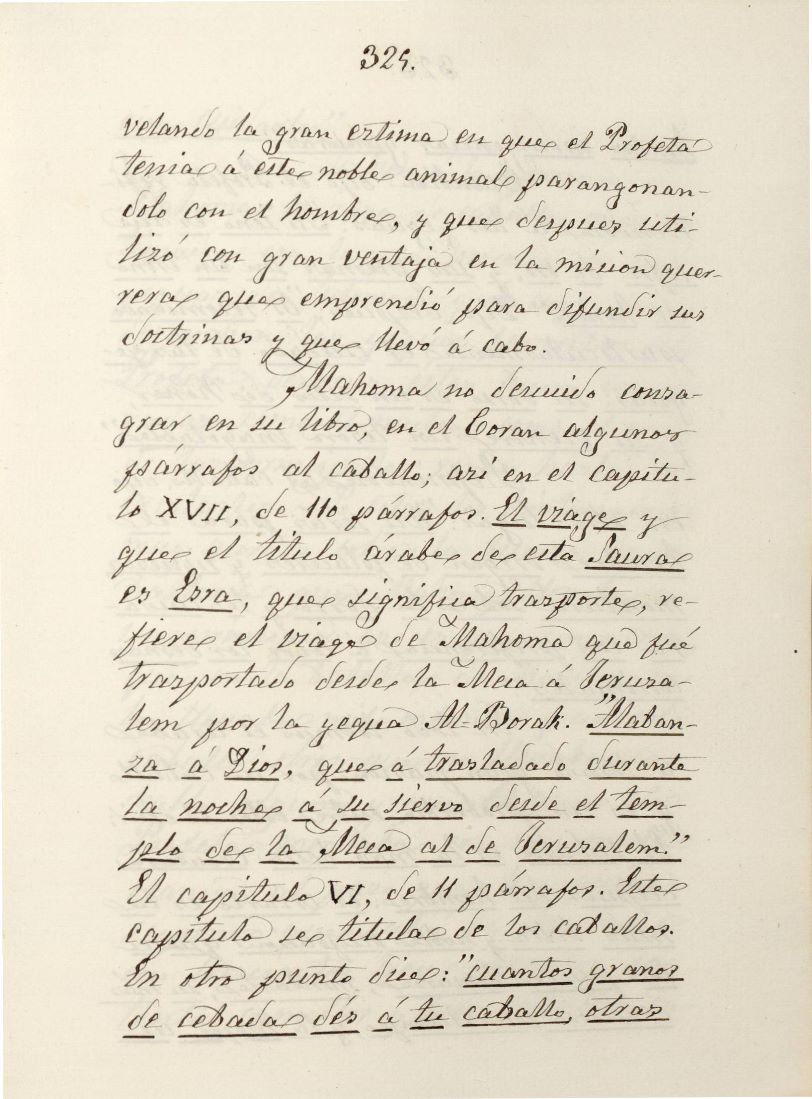 325.
velando la gran eztima en que el Profeta
tenia á este noble animal parangonan-
dolo con el hombre, y que despues uti-
lizó con gran ventaja en la mision guer-
rera que emprendió para difundir sus
doctrinas y que llevó á cabo.
Mahoma no descuido consa-
grar en su libro, en el Coran algunos
párrafos al caballo; asi en el capitu-
lo XVII, de 110 párrafos. El viáge y
que el titulo árabe de esta Saura
es Esra, que significa trasporte, re-
fiere el viáge de Mahoma que fué
trasportado desde la Meca á Jerusa-
lem por la yegua Al-Borak. "Alaban-
za á Dios, que á trasladado durante
la noche á su siervo desde el tem-
plo de la Meca al de Jerusalem."
El capitulo VI, de 11 párrafos. Este
capitulo se titula de los caballos.
En otro punto dice: "cuantos granos
de cebada dés á tu caballo, otras